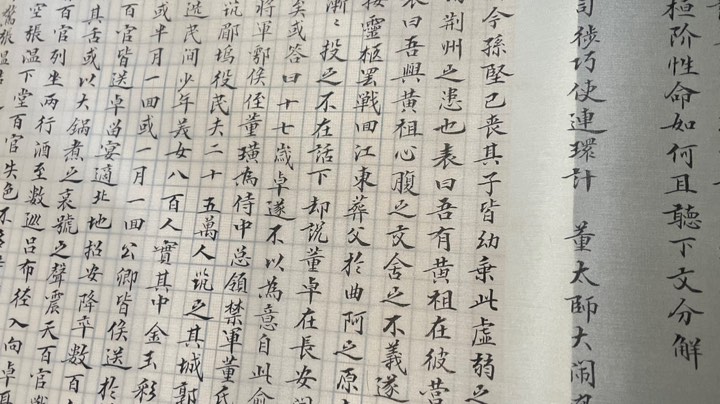 桓阶性命如何且聽下文分解
司徒巧使連環計 董太師大闹
今孫堅已喪其子皆幼乘此虛弱之
荆州之患也表曰吾有黄祖在彼营
表曰吾與黄祖心腹之交舍之不義遂
接靈柩罢戦回江東葬父於曲阿之原
漸〻投之不在話下却說董卓在長安闻
矣或答曰十七歲卓遂不以為意自此愈
将軍鄠侯侄董璜為侍中总領禁軍董氏
筑郿塢役民夫二十五萬人筑之其城郭
选民間少年美女八百人實其中金玉彩
或半月一回或一月一回公卿皆侯送於
百官皆送卓留宴適北地招安降卒数百
其舌或以大鍋煮之哀號之聲震天百官戰
百官列坐两行酒至数巡吕布径入向卓耳
空張温下堂百官失色不
張温